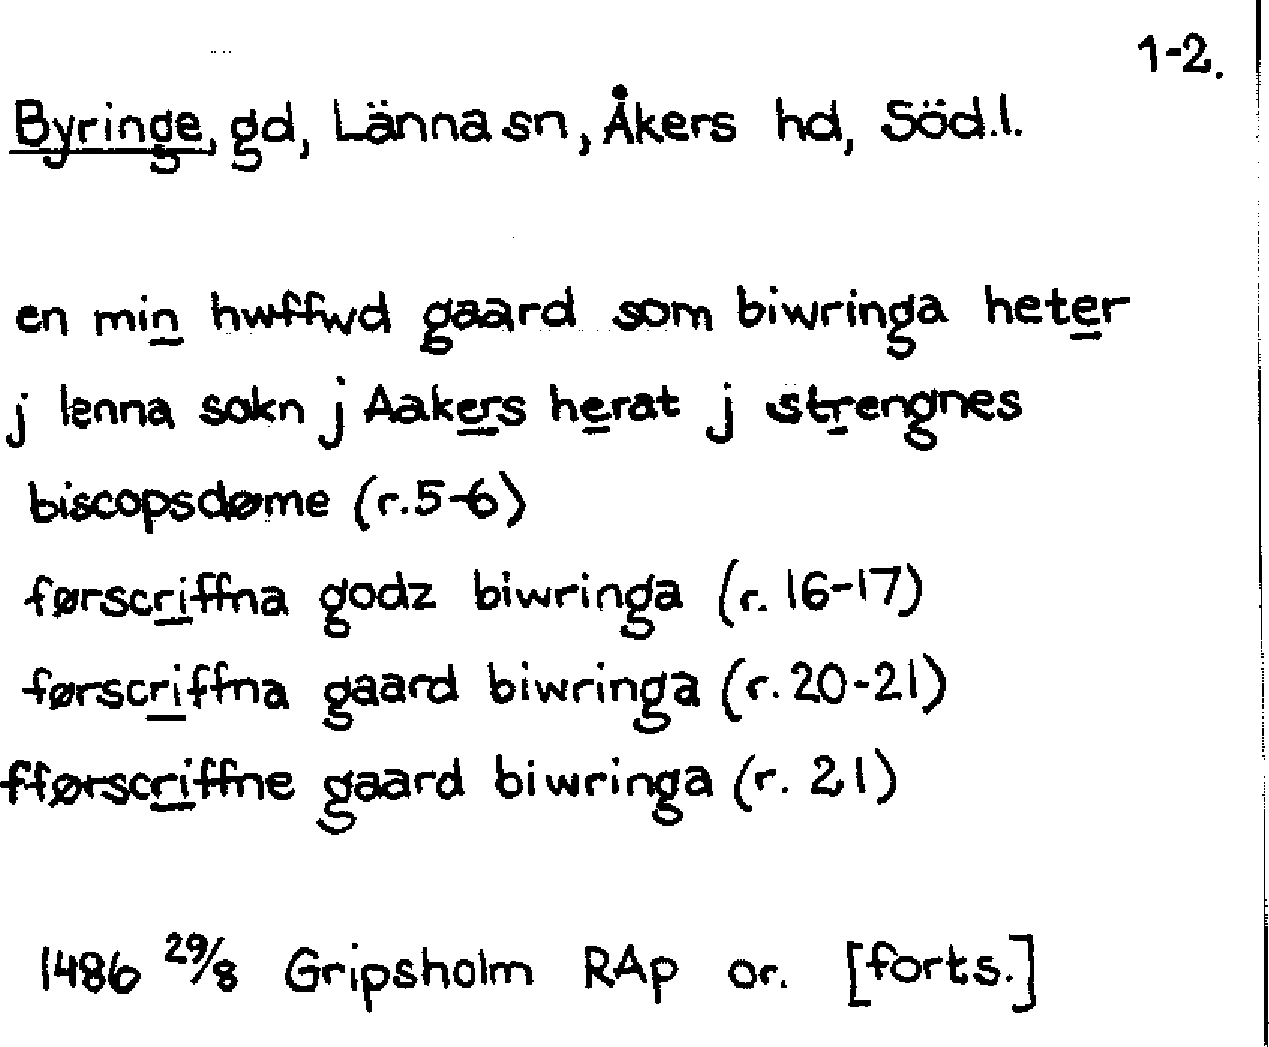 1-2.
Byringe, gd, Länna sn, Åkers hd, Söd.l.
en min hwffwd gaard som biwringa heter
j lenna sokn j Aakers herat j strengnes
biscopsdøme (r.5-6)
førscriffna godz biwringa (r. 16-17)
førscriffna gaard biwringa (r. 20-21)
fførscriffne gaard biwringa (r. 21)
1486 29/8 Gripsholm RAp or. [forts.]